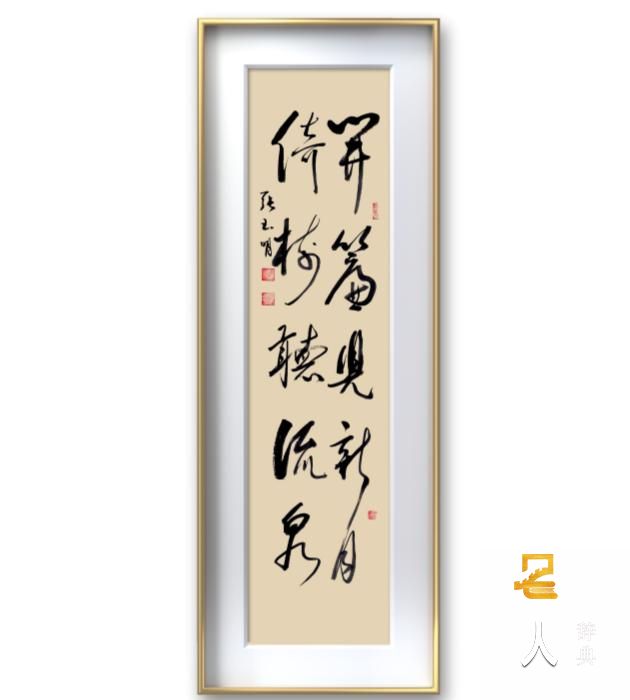 開簾見新月
倚樹聽流泉
張玉明
名人
辞典